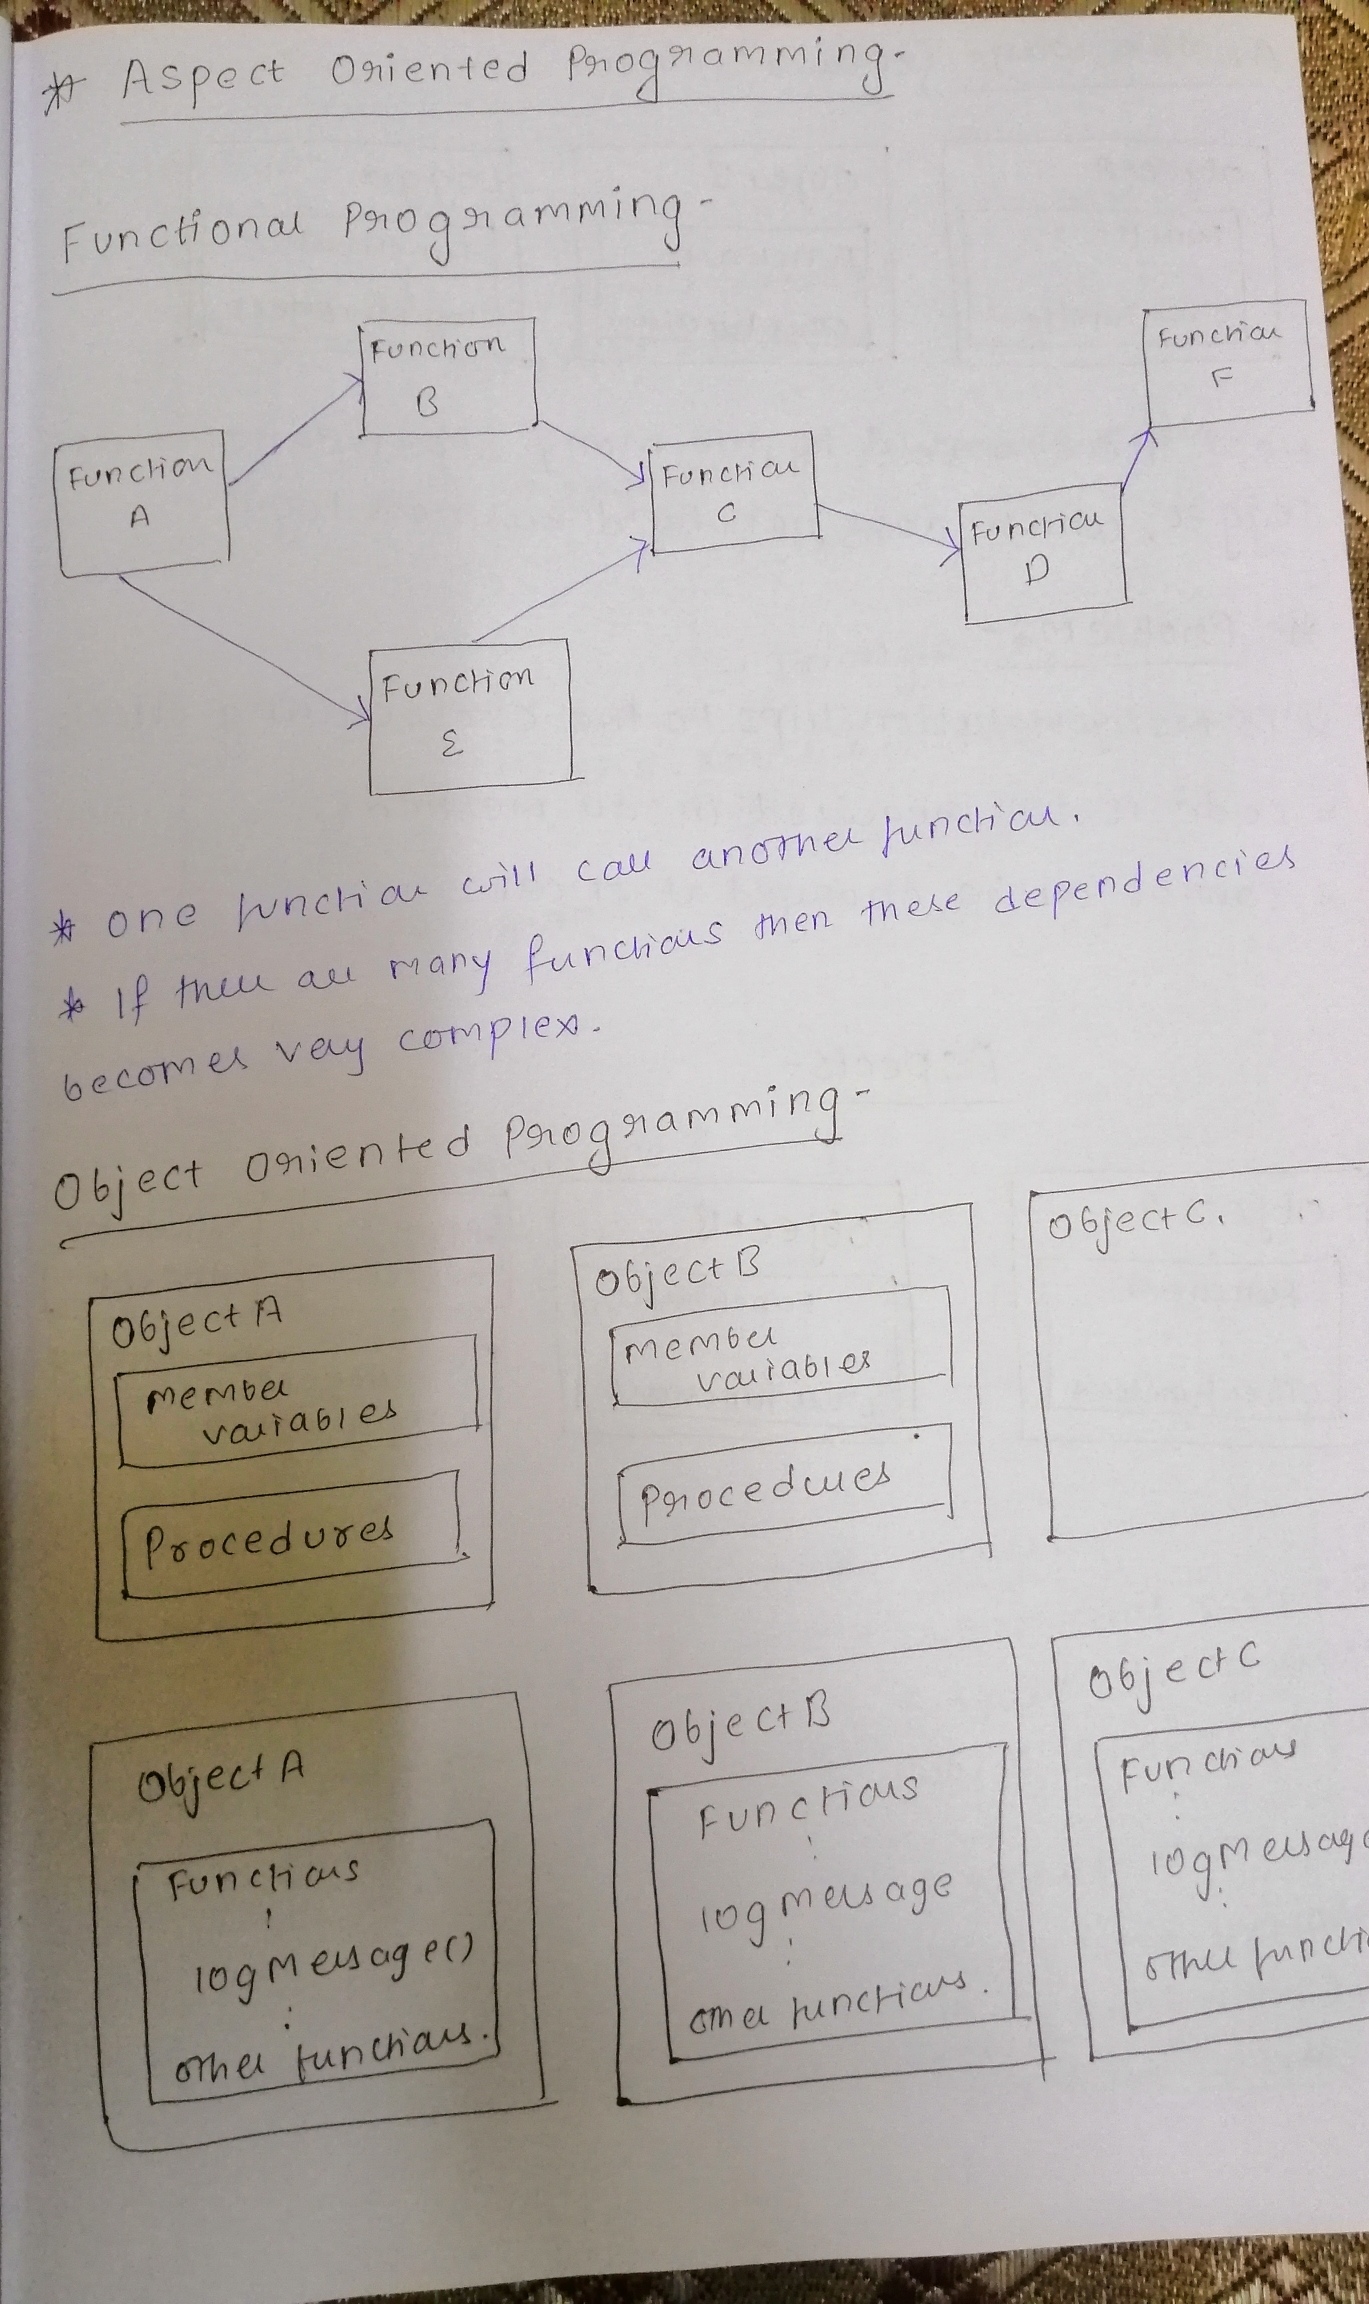 * Aspect Oriented Programming-
Functional Programming-
Function
B
Function
F
Function
A
Function
C
Function
D
Function
E
* one function will call another function.
* If there are many functions then these dependencies
becomes very complex.
Object Oriented Programming-
Object A
member
variables
Procedures
Object B
member
variables
Procedures
Object C.
Object A
Functions
logMessage()
other functions.
Object B
Functions
logMessage
other functions.
Object C
Functions
logMessage
other functi